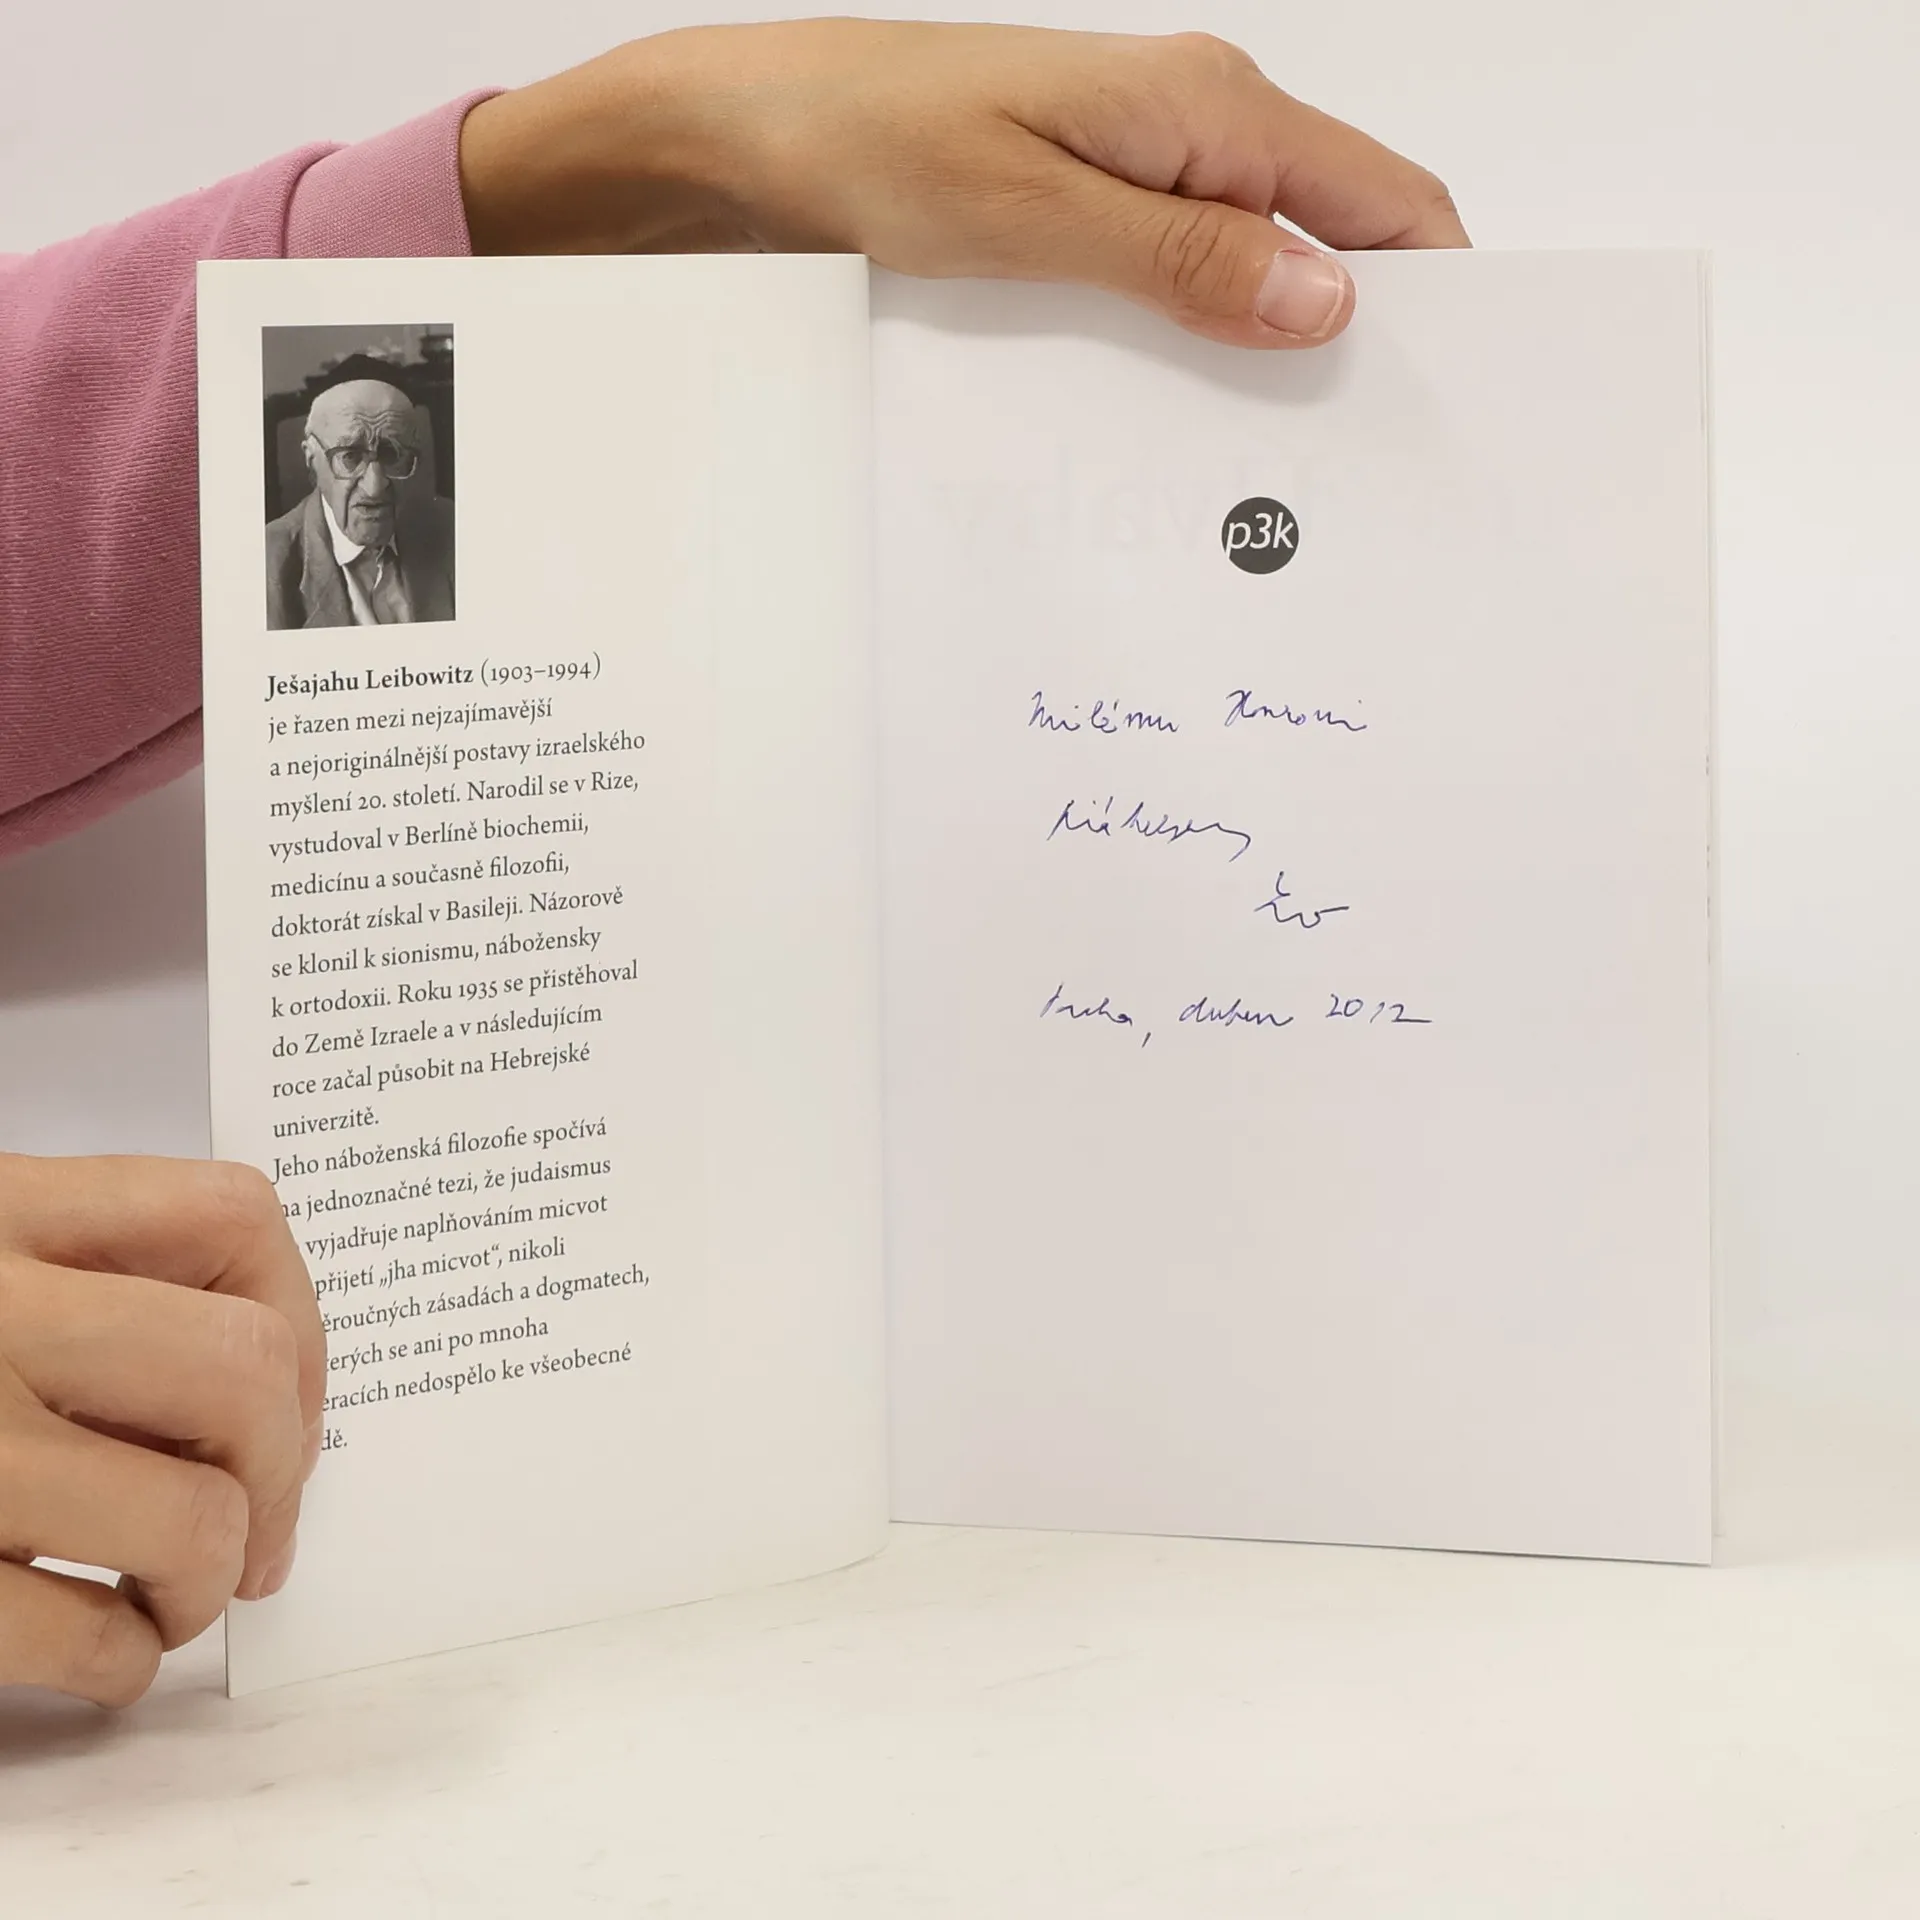 Ješajahu Leibowitz (1903–1994)
je řazen mezi nejzajímavější
a nejoriginálnější postavy izraelského
myšlení 20. století. Narodil se v Rize,
vystudoval v Berlíně biochemii,
medicínu a současně filozofii,
doktorát získal v Basileji. Názorově
se klonil k sionismu, nábožensky
k ortodoxii. Roku 1935 se přistěhoval
do Země Izraele a v následujícím
roce začal působit na Hebrejské
univerzitě.
Jeho náboženská filozofie spočívá
na jednoznačné tezi, že judaismus
vyjadřuje naplňováním micvot
přijetí „jha micvot“, nikoli
ěroučných zásadách a dogmatech,
terých se ani po mnoha
eracích nedospělo ke všeobecné
dě.
p3k
Milému
Praha, duben 2012